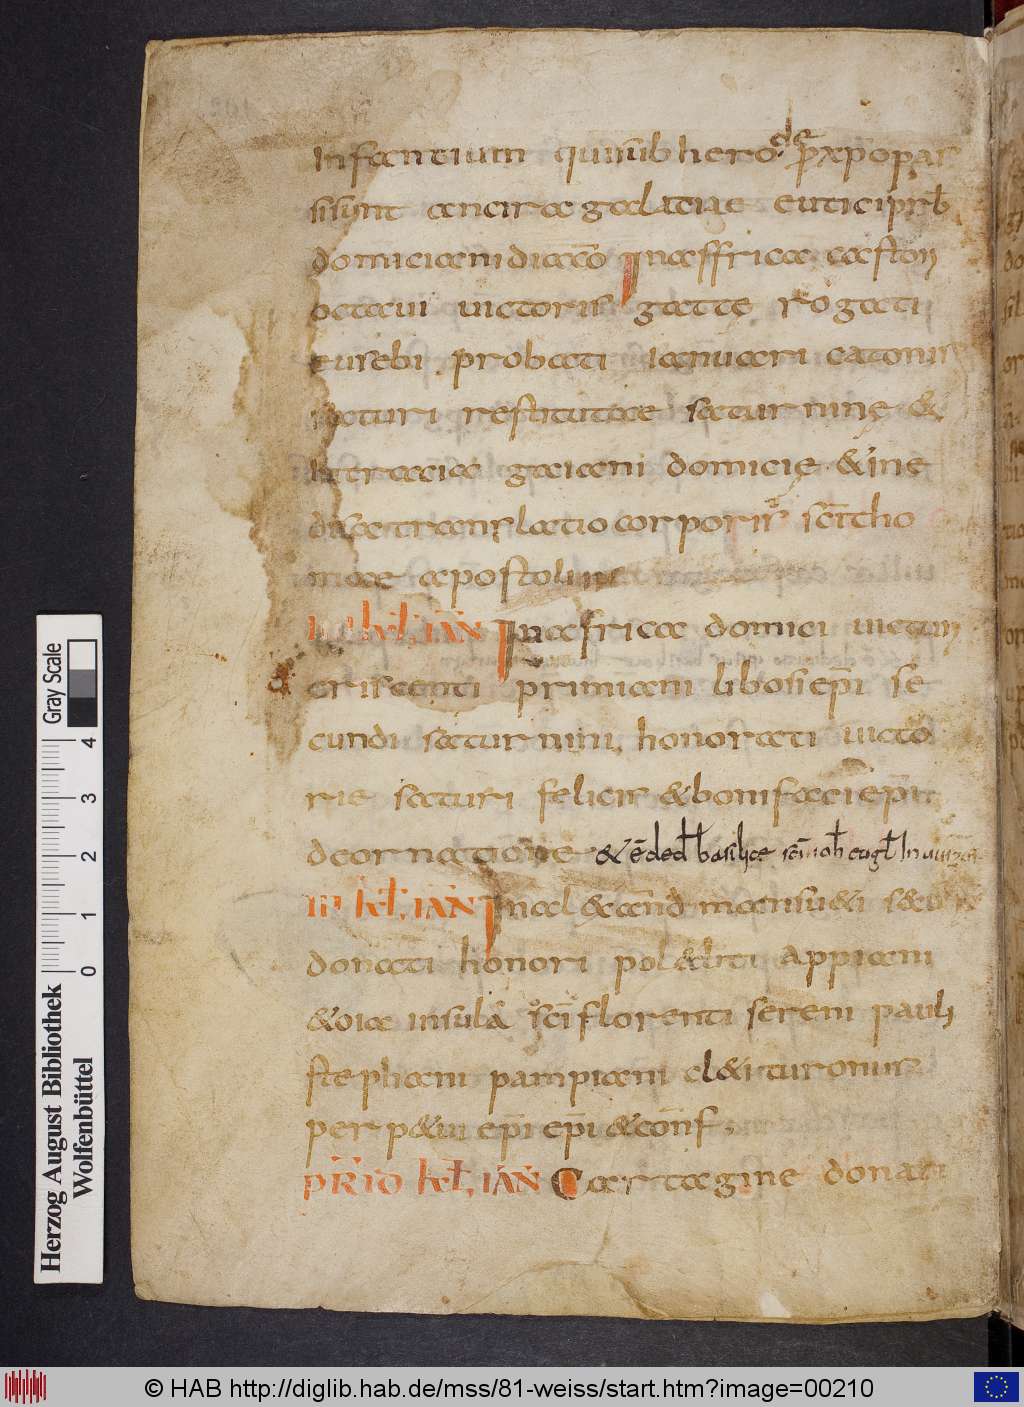 Infantium qui sub herode p̄ xp̄o pas
si sunt ancira galatiae eutici prb̄
domiciani diacō In affrica castoy
octavi victoris gatte rogati
eusebi probati ianuari catonis
saturi restitutae saturnine &
In traciae gaiani domicie & in e
disa translatio corporis sc̄i tho
mae apostoli in
kl̄. IAN̄ In africa domici victuri
criscenti primiani libosi ep̄i se
cundi saturnini honorati victo
rie saturi felicis & bonifaci ep̄i
de ornatione & ē ded̄ basilice sc̄i ioh̄ eugl̄ In
III kl̄. IAN̄ In alexand̄ mansueti
donati honori poleti appiani
& oia insula sc̄i florenti sereni pauli
stephani pampiani cl&i turonus
perp&ui ep̄i ep̄i & conf.
PRIO kl̄. IAN̄ Cartagine donati
Gray Scale
4
3
2
1
0
Herzog August Bibliothek
Wolfenbüttel
© HAB http://diglib.hab.de/mss/81-weiss/start.htm?image=00210